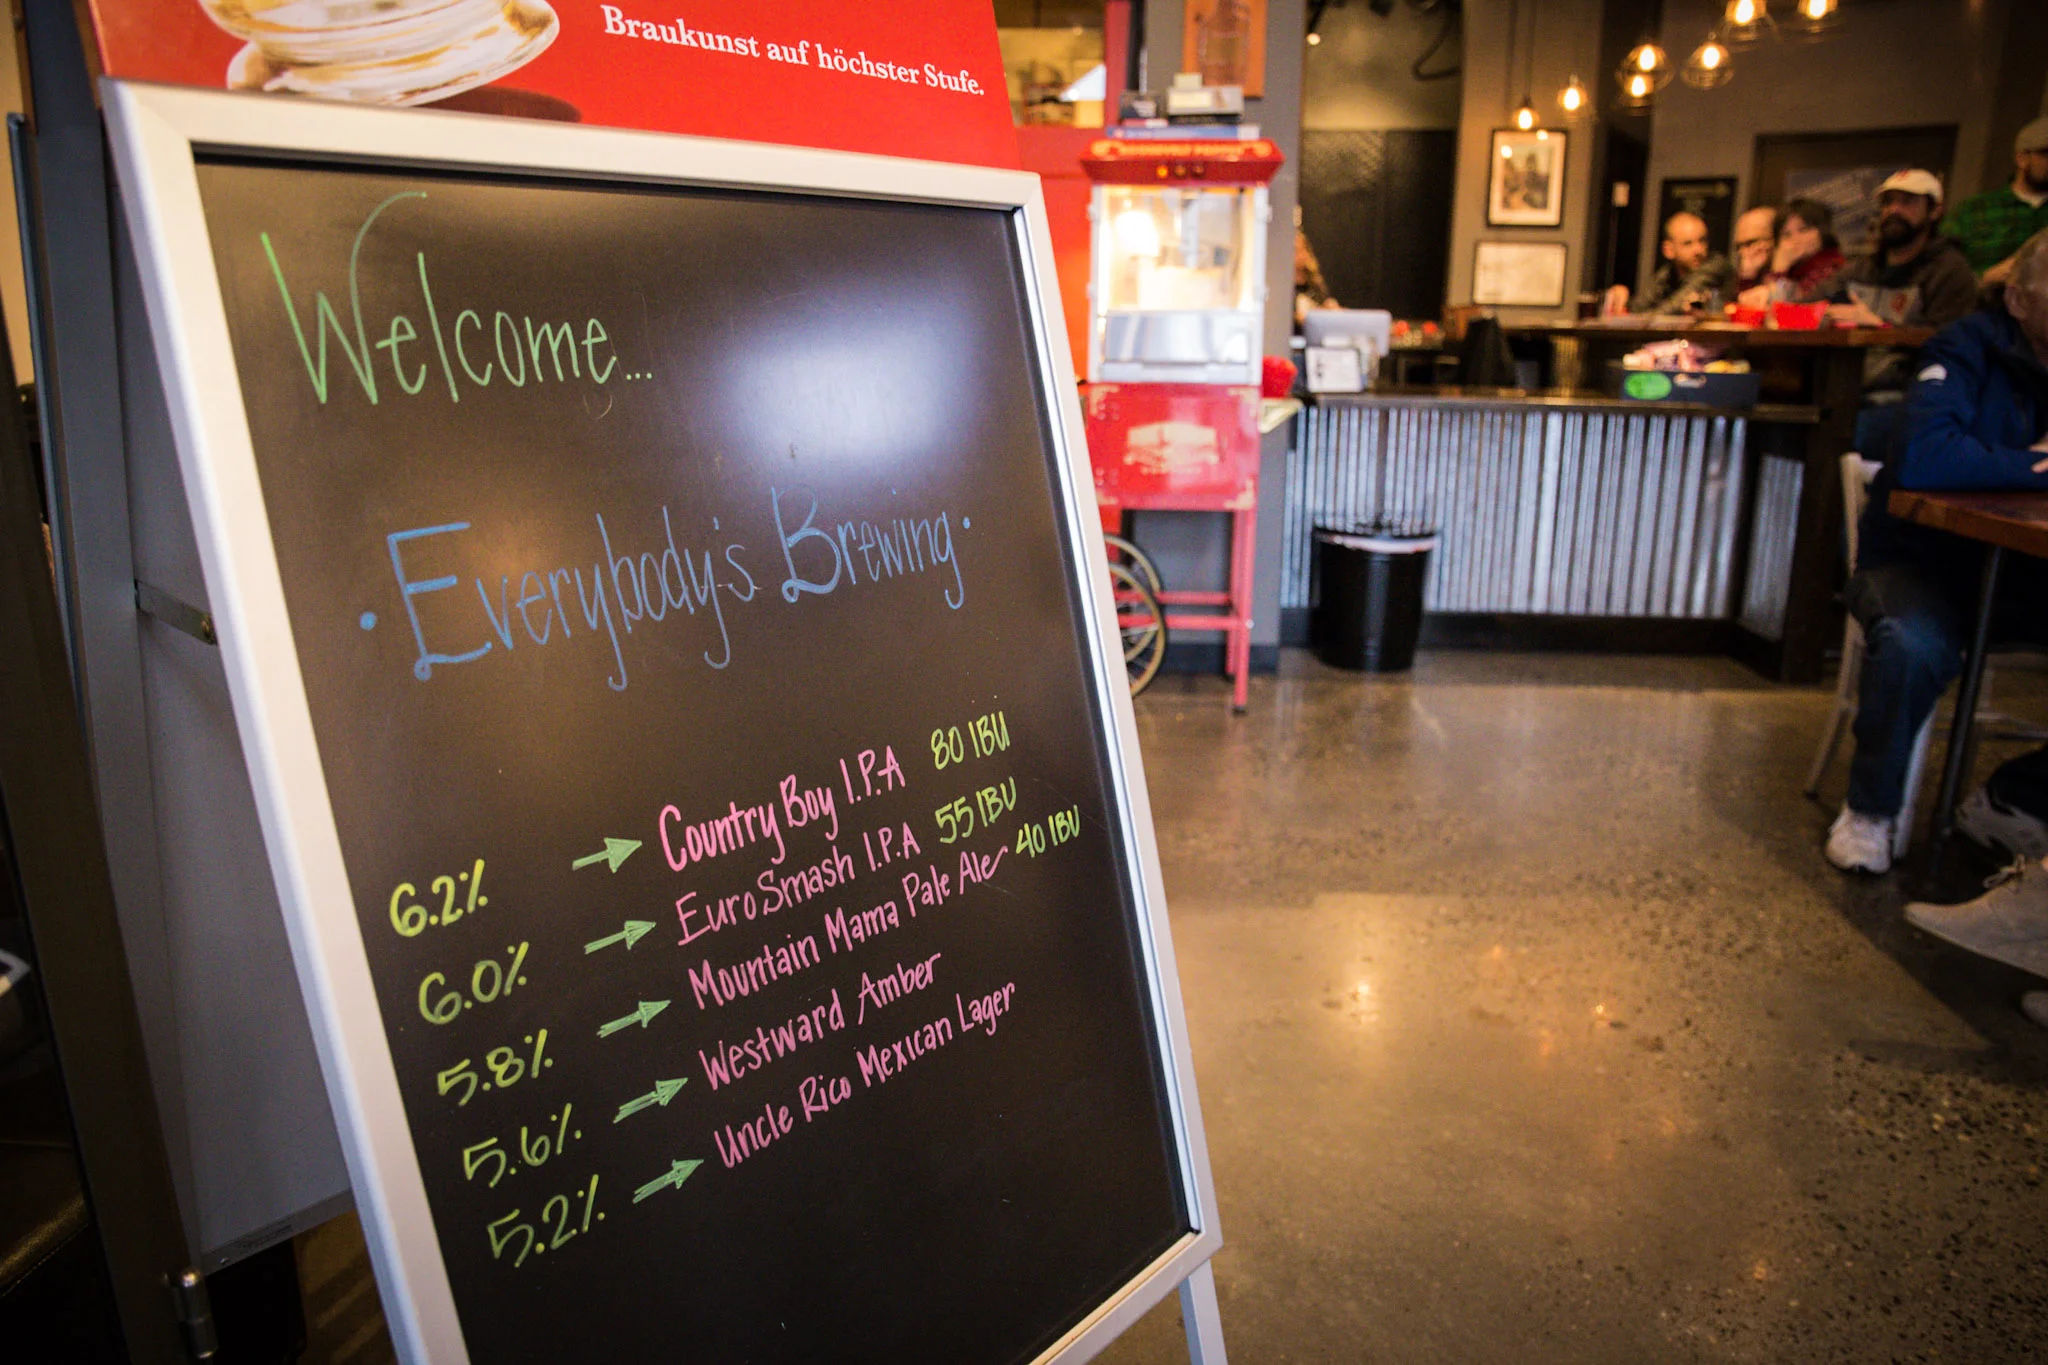 Braukunst auf höchster Stufe.
Welcome...
• Everybody's Brewing •
6.2% → Country Boy I.P.A 80 IBU
6.0% → Euro Smash I.P.A 55 IBU
5.8% → Mountain Mama Pale Ale 40 IBU
5.6% → Westward Amber
5.2% → Uncle Rico Mexican Lager